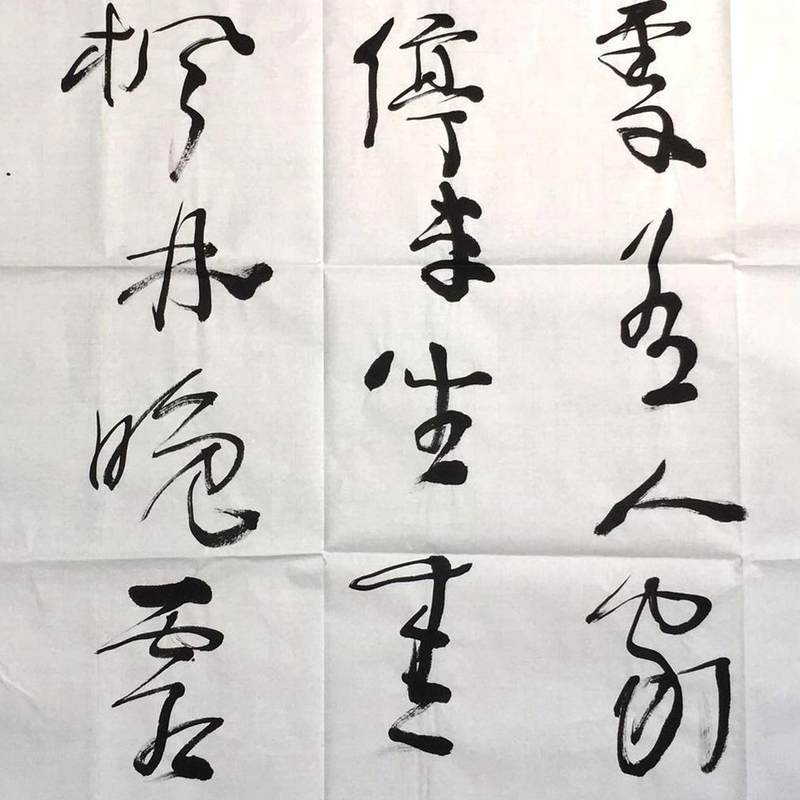 處有人家
停車坐愛
楓林晚霜